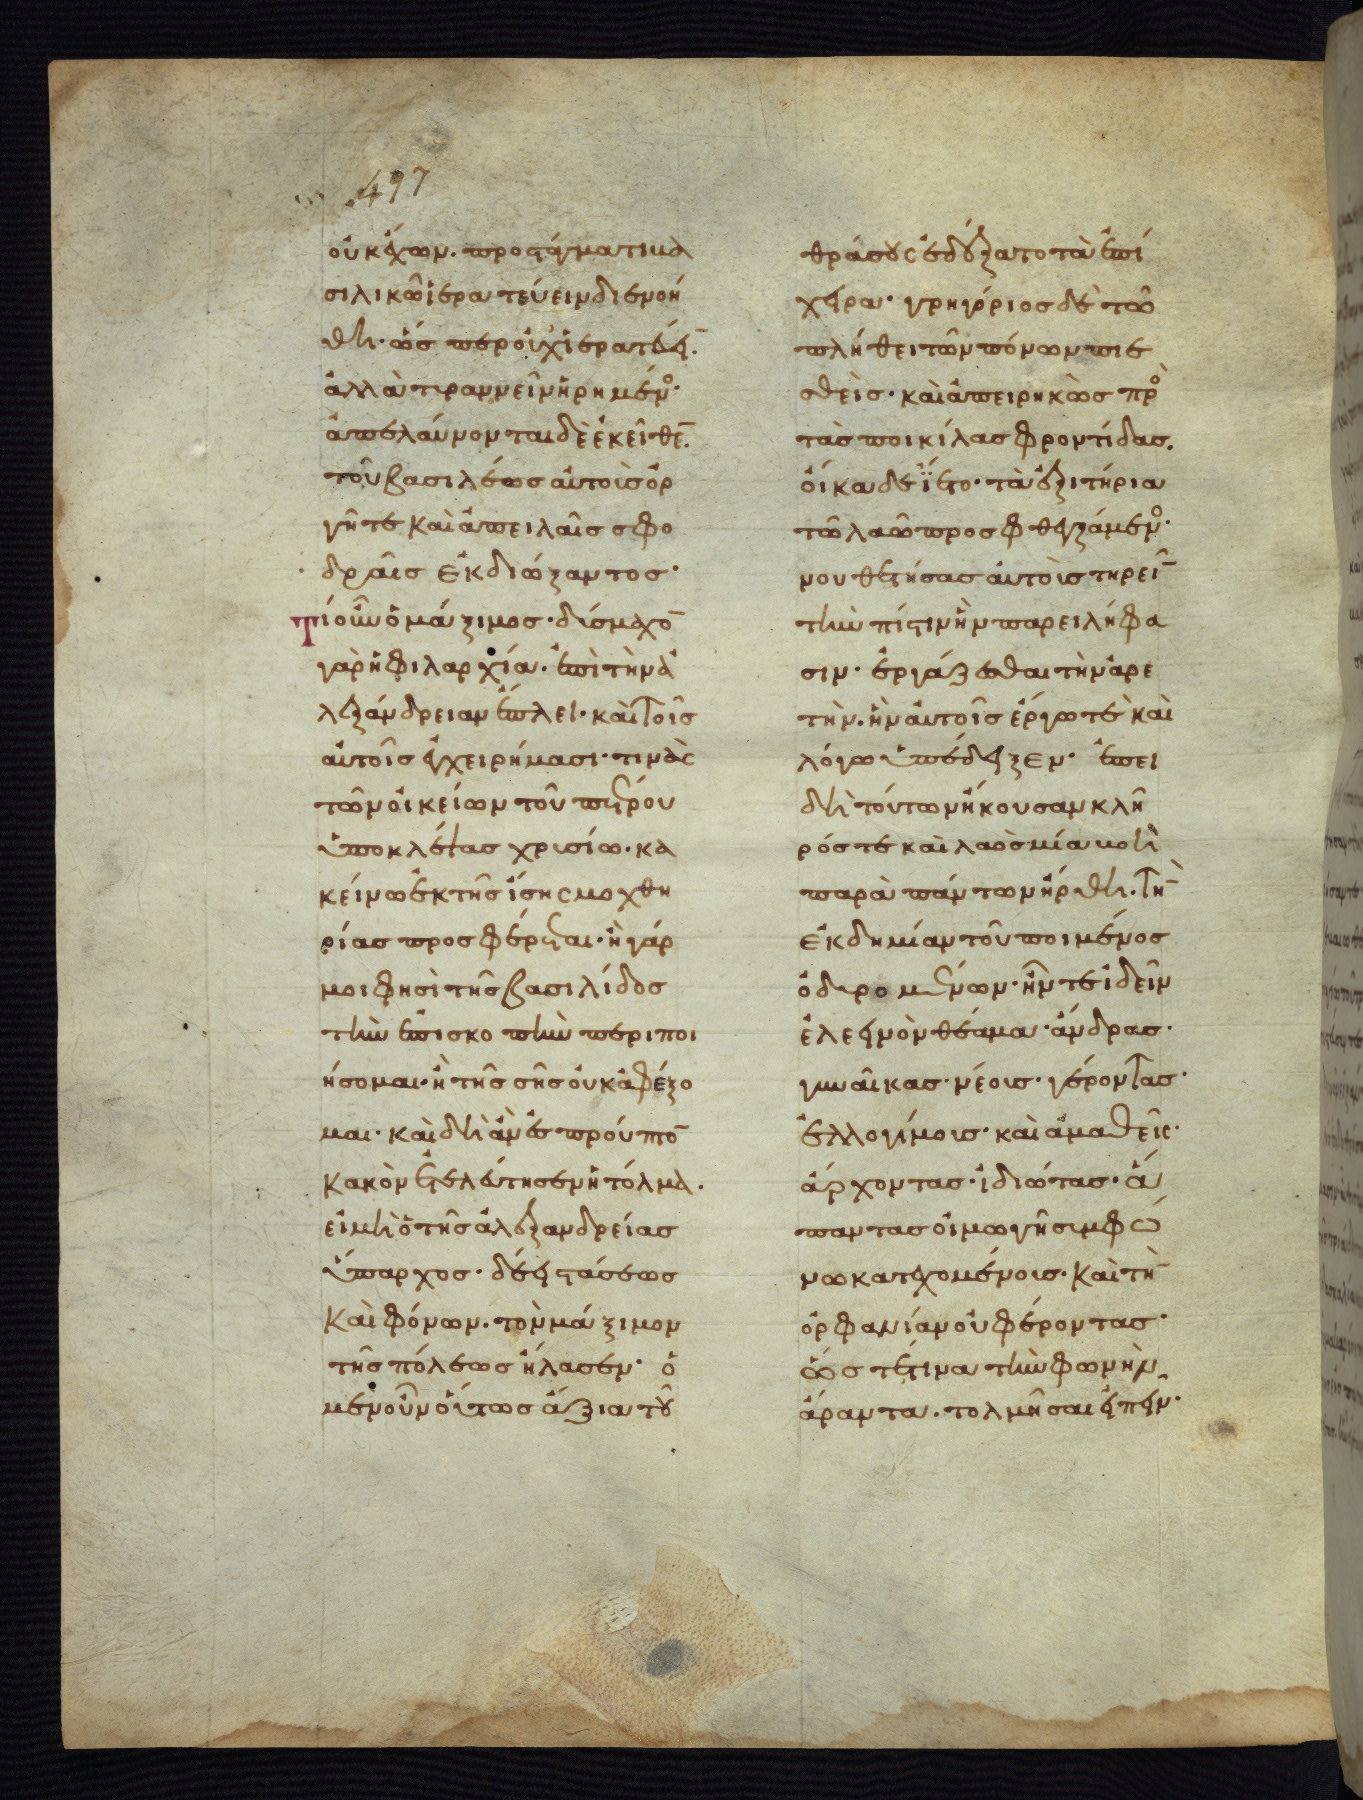 497
οὐκ ἔχων. προστάγματι βα
σιλικῶ ἱερατεύειν διενοή
θη. ὥσπερ οὐχ ἱερατεύειν.
ἀλλὰ τυραννεῖν ἡρημένος.
ἀπελαύνονται δὲ ἐκεῖθεν.
τοῦ βασιλέως αὐτοὺς ὀρ
γῆ τε καὶ ἀπειλαῖς σφο
δραῖς ἐκδιώξαντος.
Τί οὖν ὁ μάξιμος. δύσμαχον
γὰρ ἡ φιλαρχία. ἐπὶ τὴν ἀ
λεξάνδρειαν ἔπλει. καὶ τοῖς
αὐτοῖς ἐγχειρήμασι. τινὰς
τῶν οἰκείων τοῦ πέτρου
ὑποκλέψας χρυσίω. κα
κείνω ἐκ τῆς ἴσης μοχθη
ρίας προσφέρεται. ἢ γάρ
μοι φησὶ τῆς βασιλίδος
τὴν ἐπισκοπὴν περιποι
ήσομαι. ἢ τῆς σῆς οὐκ ἀφέξο
μαι. καὶ δὴ ἂν ἐς προὖπτον
κακὸν ἐτελεύτησεν ἡ τόλμα.
εἰ μὴ ὁ τῆς ἀλεξανδρείας
ὕπαρχος. δέει στάσεως
καὶ φόνων. τὸν μάξιμον
τῆς πόλεως ἤλασεν. ὁ
μὲν οὖν οὕτως ἄξια τοῦ
θράσους ἐδέξατο τὰ ἐπί
χειρα. γρηγόριος δὲ τῶ
πλήθει τῶν πόνων πιε
σθεὶς. καὶ ἀπειρηκὼς πρὸς
τὰς ποικίλας φροντίδας.
οἴκαδε ἵετο. τὰ ἐξιτήρια
τῶ λαῶ προσφθεγξάμενος.
νουθετήσας αὐτοὺς τηρεῖν
τὴν πίστιν ἣν παρειλήφα
σιν. ἐργάζεσθαι τὴν ἀρε
τὴν. ἣν αὐτοῖς ἔργω τε καὶ
λόγω ὑπέδειξεν. ἐπεὶ
δὴ τούτων ἤκουσαν κλῆ
ρός τε καὶ λαὸς μία βοὴ
παρὰ πάντων ἤρθη. τὴν
ἐκδημίαν τοῦ ποιμένος
ὀδυρομένων. ἦν τε ἰδεῖν
ἐλεεινὸν θέαμα. ἄνδρας.
γυναῖκας. νέους. γέροντας.
ἐλλογίμους. καὶ ἀμαθεῖς.
ἄρχοντας. ἰδιώτας. ἅ
παντας οἰμωγῆ συμφώ
νω κατεχομένους. καὶ τὴν
ὀρφανίαν οὐ φέροντας.
ὥς τέ τινα τὴν φωνὴν
ἄραντα. τολμῆσαι εἰπεῖν.